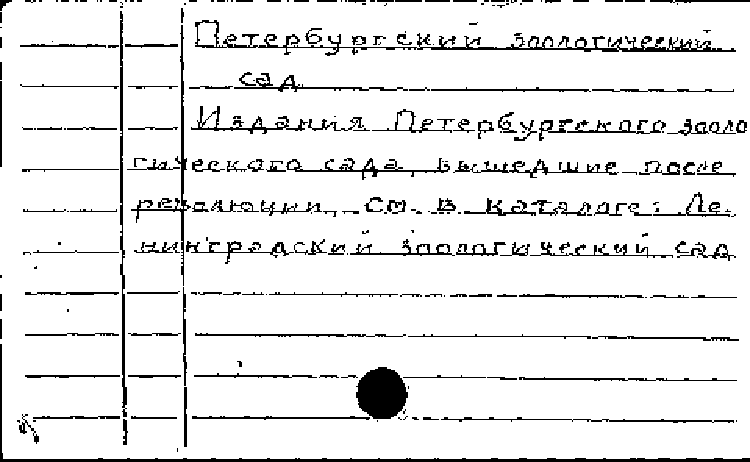 Петербургский зоологический
сад
Издания Петербургского зооло
гического сада, вышедшие после
революции, см. в каталоге: Ле.
нинградский зоологический сад